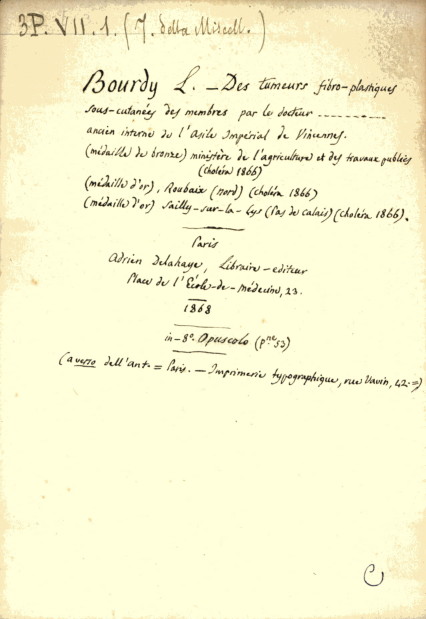 3P. VII. 1. (7. della Miscell.)
Bourdy L. _ Des tumeurs fibro-plastiques
sous-cutanées des membres par le docteur ----------
ancien interne de l'Asile Impérial de Vincennes.
(médaille de bronze) ministère de l'agriculture et des travaux publics
(choléra 1866)
(médaille d'or), Roubaix (nord) (choléra 1866)
(médaille d'or) Sailly-sur-la-Lys (Pas de calais) (choléra 1866).
Paris
Adrien Delahaye, Libraire-editeur
Place de l'Ecole-de-médecine, 23.
1868
in-8º. Opuscolo (p.ne 53)
(a verso dell'ant. = Paris. — Imprimerie typographique, rue Vavin, 42. =)
C